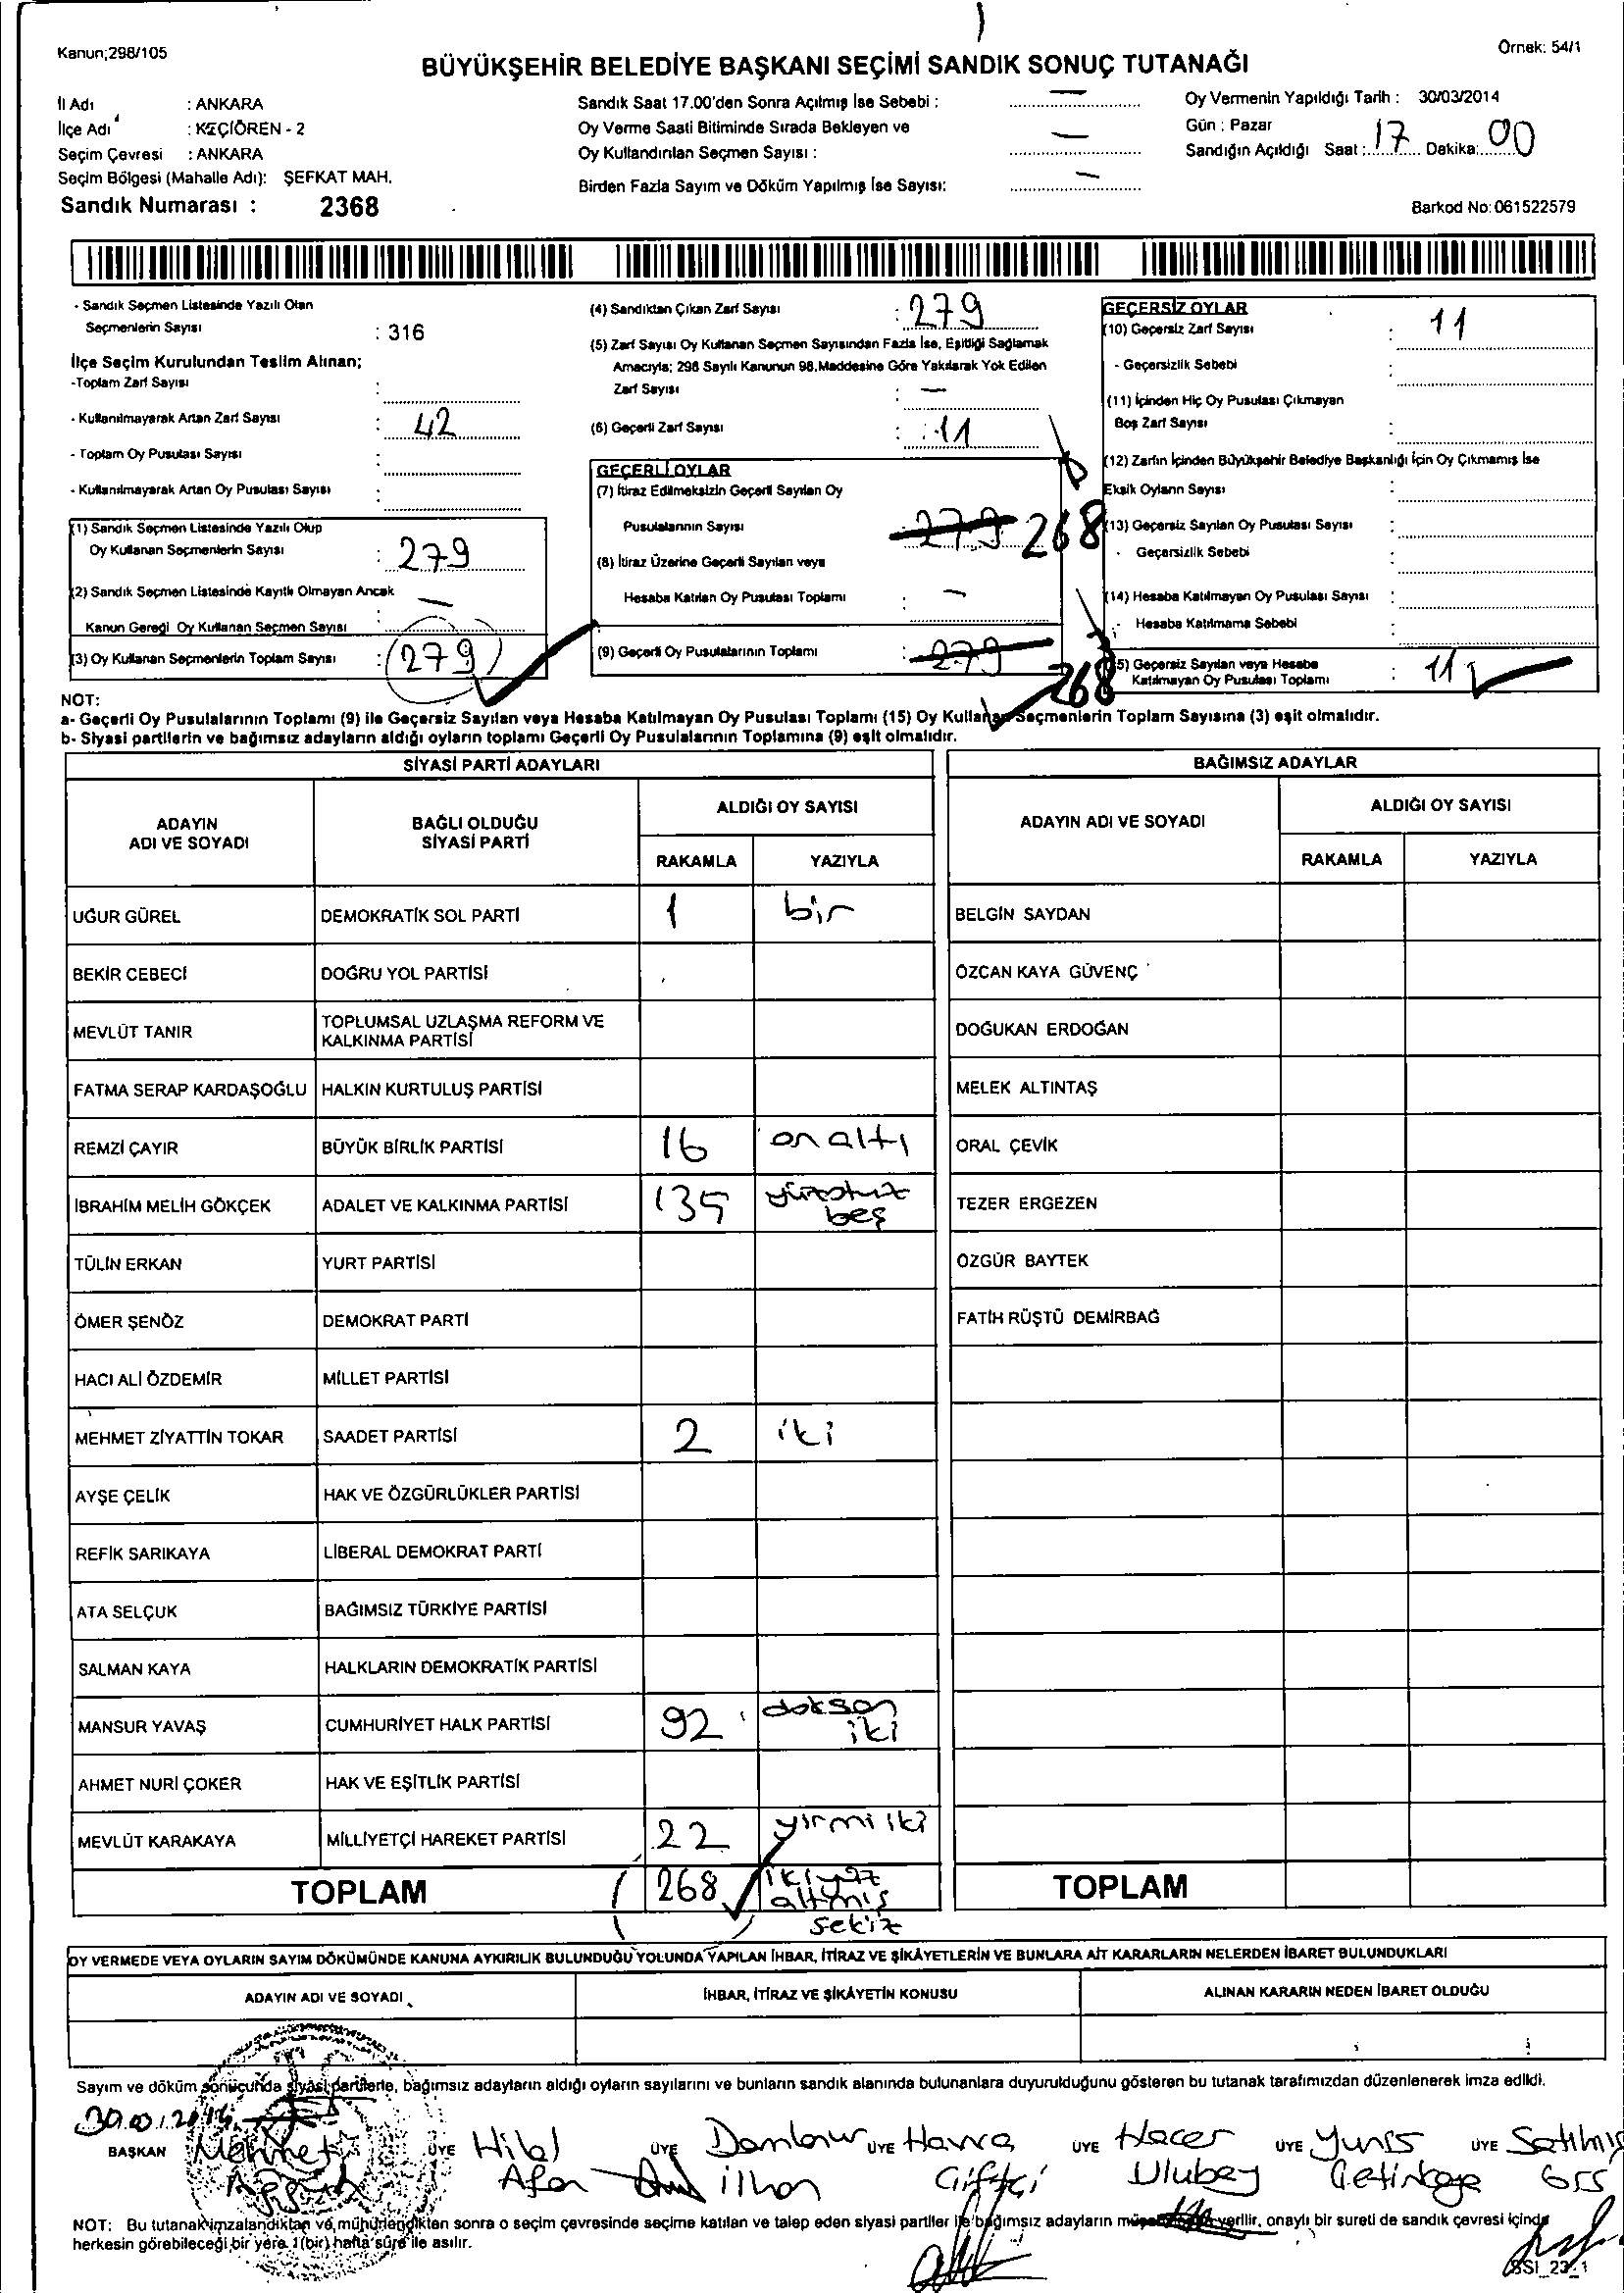 Kanun;298/105
Örnek: 54/1
BÜYÜKŞEHİR BELEDİYE BAŞKANI SEÇİMİ SANDIK SONUÇ TUTANAĞI
İl Adı : ANKARA
İlçe Adı : KEÇİÖREN - 2
Seçim Çevresi : ANKARA
Seçim Bölgesi (Mahalle Adı): ŞEFKAT MAH.
Sandık Numarası : 2368
Sandık Saat 17.00'den Sonra Açılmış İse Sebebi : —
Oy Verme Saati Bitiminde Sırada Bekleyen ve
Oy Kullandırılan Seçmen Sayısı : —
Birden Fazla Sayım ve Döküm Yapılmış İse Sayısı: —
Oy Vermenin Yapıldığı Tarih : 30/03/2014
Gün : Pazar
Sandığın Açıldığı Saat : 17 Dakika: 00
Barkod No: 061522579
- Sandık Seçmen Listesinde Yazılı Olan
Seçmenlerin Sayısı : 316
İlçe Seçim Kurulundan Teslim Alınan;
-Toplam Zarf Sayısı :
- Kullanılmayarak Artan Zarf Sayısı : 42
- Toplam Oy Pusulası Sayısı :
- Kullanılmayarak Artan Oy Pusulası Sayısı :
(1) Sandık Seçmen Listesinde Yazılı Olup
Oy Kullanan Seçmenlerin Sayısı : 279
(2) Sandık Seçmen Listesinde Kayıtlı Olmayan Ancak
Kanun Gereği Oy Kullanan Seçmen Sayısı : —
(3) Oy Kullanan Seçmenlerin Toplam Sayısı : 279
(4) Sandıktan Çıkan Zarf Sayısı : 279
(5) Zarf Sayısı Oy Kullanan Seçmen Sayısından Fazla İse, Eşitliği Sağlamak
Amacıyla; 298 Sayılı Kanunun 98.Maddesine Göre Yakılarak Yok Edilen
Zarf Sayısı : —
(6) Geçerli Zarf Sayısı : 11
GEÇERLİ OYLAR
(7) İtiraz Edilmeksizin Geçerli Sayılan Oy
Pusulalarının Sayısı 279 268
(8) İtiraz Üzerine Geçerli Sayılan veya
Hesaba Katılan Oy Pusulası Toplamı : —
(9) Geçerli Oy Pusulalarının Toplamı : 279 268
GEÇERSİZ OYLAR
(10) Geçersiz Zarf Sayısı : 11
- Geçersizlik Sebebi :
(11) İçinden Hiç Oy Pusulası Çıkmayan
Boş Zarf Sayısı :
(12) Zarfın İçinden Büyükşehir Belediye Başkanlığı İçin Oy Çıkmamış İse
Eksik Oyların Sayısı :
(13) Geçersiz Sayılan Oy Pusulası Sayısı :
- Geçersizlik Sebebi :
(14) Hesaba Katılmayan Oy Pusulası Sayısı :
- Hesaba Katılmama Sebebi :
(15) Geçersiz Sayılan veya Hesaba
Katılmayan Oy Pusulası Toplamı : 11
NOT:
a- Geçerli Oy Pusulalarının Toplamı (9) ile Geçersiz Sayılan veya Hesaba Katılmayan Oy Pusulası Toplamı (15) Oy Kullanan Seçmenlerin Toplam Sayısına (3) eşit olmalıdır.
b- Siyasi partilerin ve bağımsız adayların aldığı oyların toplamı Geçerli Oy Pusulalarının Toplamına (9) eşit olmalıdır.
SİYASİ PARTİ ADAYLARI BAĞIMSIZ ADAYLAR
ADAYIN ADI VE SOYADI BAĞLI OLDUĞU SİYASİ PARTİ ALDIĞI OY SAYISI ADAYIN ADI VE SOYADI ALDIĞI OY SAYISI
RAKAMLA YAZIYLA RAKAMLA YAZIYLA
UĞUR GÜREL DEMOKRATİK SOL PARTİ 1 bir BELGİN SAYDAN
BEKİR CEBECİ DOĞRU YOL PARTİSİ ÖZCAN KAYA GÜVENÇ
MEVLÜT TANIR TOPLUMSAL UZLAŞMA REFORM VE KALKINMA PARTİSİ DOĞUKAN ERDOĞAN
FATMA SERAP KARDAŞOĞLU HALKIN KURTULUŞ PARTİSİ MELEK ALTINTAŞ
REMZİ ÇAYIR BÜYÜK BİRLİK PARTİSİ 16 on altı ORAL ÇEVİK
İBRAHİM MELİH GÖKÇEK ADALET VE KALKINMA PARTİSİ 135 yüzotuz beş TEZER ERGEZEN
TÜLİN ERKAN YURT PARTİSİ ÖZGÜR BAYTEK
ÖMER ŞENÖZ DEMOKRAT PARTİ FATİH RÜŞTÜ DEMİRBAĞ
HACI ALİ ÖZDEMİR MİLLET PARTİSİ
MEHMET ZİYATTİN TOKAR SAADET PARTİSİ 2 iki
AYŞE ÇELİK HAK VE ÖZGÜRLÜKLER PARTİSİ
REFİK SARIKAYA LİBERAL DEMOKRAT PARTİ
ATA SELÇUK BAĞIMSIZ TÜRKİYE PARTİSİ
SALMAN KAYA HALKLARIN DEMOKRATİK PARTİSİ
MANSUR YAVAŞ CUMHURİYET HALK PARTİSİ 92 doksan iki
AHMET NURİ ÇOKER HAK VE EŞİTLİK PARTİSİ
MEVLÜT KARAKAYA MİLLİYETÇİ HAREKET PARTİSİ 22 yirmi iki
TOPLAM 268 ikiyüz altmış sekiz TOPLAM
OY VERMEDE VEYA OYLARIN SAYIM DÖKÜMÜNDE KANUNA AYKIRILIK BULUNDUĞU YOLUNDA YAPILAN İHBAR, İTİRAZ VE ŞİKÂYETLERİN VE BUNLARA AİT KARARLARIN NELERDEN İBARET BULUNDUKLARI
ADAYIN ADI VE SOYADI İHBAR, İTİRAZ VE ŞİKÂYETİN KONUSU ALINAN KARARIN NEDEN İBARET OLDUĞU
Sayım ve döküm sonucunda siyasi partilerle, bağımsız adayların aldığı oyların sayılarını ve bunların sandık alanında bulunanlara duyurulduğunu gösteren bu tutanak tarafımızdan düzenlenerek imza edildi.
BAŞKAN Mehmet ÜYE Hilal ÜYE ÜYE Havva ÜYE Hacer ÜYE Yunus ÜYE Satılmış
Afan ilhan Çiftçi Ulubey Çetinkaya
NOT: Bu tutanak imzalandıktan ve mühürlendikten sonra o seçim çevresinde seçime katılan ve talep eden siyasi partiler ile bağımsız adayların verilir, onaylı bir sureti de sandık çevresi içinde
herkesin görebileceği bir yere 1(bir) hafta süre ile asılır.
SSI_23_1